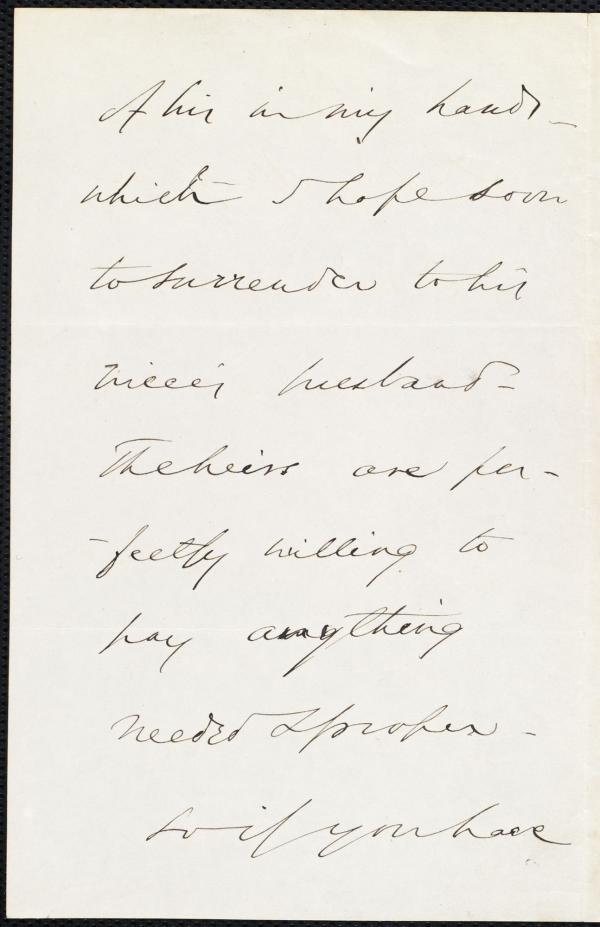 of his in my hands -
which I hope soon
to surrender to his
niece's husband -
The heirs are per-
-fectly willing to
pay anything
needed & proper -
so if you have